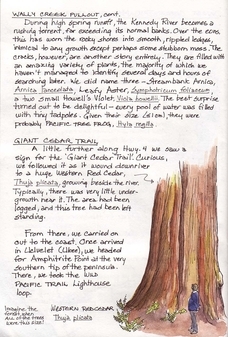 WALLY CREEK PULLOUT, cont.
During high spring runoff, the Kennedy River becomes a
rushing torrent, far exceeding its normal banks. Over the eons,
this has worn the rocky shores into smooth, rippled ledges,
inimical to any growth except perhaps some stubborn moss. The
cracks, however, are another story entirely. They are filled with
an amazing variety of plants, the majority of which we
haven't managed to identify several days and hours
of searching later. We did name three - Streambank Arnica,
Arnica lanceolata, Leafy Aster, Symphotricum foliaceum,
& two small Howell's Violet, Viola howellii. The best surprise
turned out to be delightful - every pool of water was filled
with tiny tadpoles. Given their size (≤1cm), they were
probably PACIFIC TREE FROG, Hyla regilla.
GIANT CEDAR TRAIL
A little further along Hwy. 4 we saw a
sign for the 'Giant Cedar Trail'. Curious,
we followed it as it wound downriver
to a huge Western Red Cedar,
Thuja plicata, growing beside the river.
Typically, there was very little under-
growth near it. The area had been
logged, and this tree had been left
standing.
From there, we carried on
out to the coast. Once arrived
in Ucluelet (Ukee), we headed
for Amphitrite Point at the very
southern tip of the peninsula.
There, we took the Wild
PACIFIC TRAIL Lighthouse
loop.
Imagine the
forest when
ALL of the trees
were this size!
WESTERN REDCEDAR
Thuja plicata